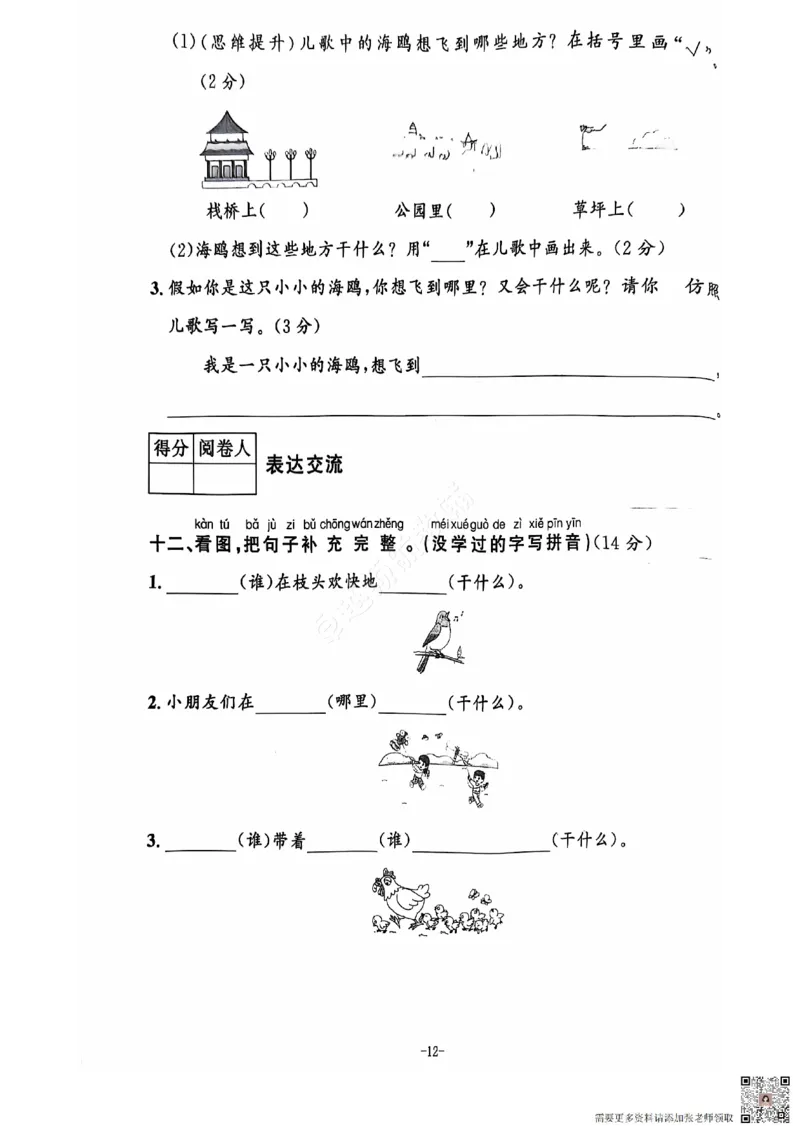 (1)(思维提升)儿歌中的海鸥想飞到哪些地方？在括号里画“√”。
(2分)
栈桥上(    )    公园里(    )    草坪上(    )
(2)海鸥想到这些地方干什么？用“___”在儿歌中画出来。(2分)
3.假如你是这只小小的海鸥,你想飞到哪里？又会干什么呢？请你 仿照
儿歌写一写。(3分)
我是一只小小的海鸥,想飞到____________________,
____________________。
得分 阅卷人
表达交流
kàn tú bǎ jù zi bǔ chōng wán zhěng méi xué guò de zì xiě pīn yīn
十二、看图,把句子补 充 完 整 。(没学过的字写拼音)(14分)
1.______(谁)在枝头欢快地______(干什么)。
2.小朋友们在______(哪里)______(干什么)。
3.______(谁)带着______(谁)____________(干什么)。
-12-
需要更多资料请添加张老师领取